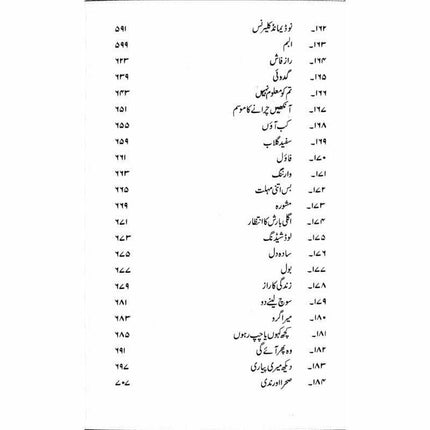 ۱۶۲۔ نو ڈیمانڈ کلیرنس ۵۹۱
۱۶۳۔ البم ۵۹۹
۱۶۴۔ راز فاش ۶۲۳
۱۶۵۔ گدوئی ۶۳۹
۱۶۶۔ تم کو معلوم نہیں ۶۴۳
۱۶۷۔ آنکھیں چرانے کا موسم ۶۵۱
۱۶۸۔ کب آؤں ۶۵۵
۱۶۹۔ سفید گلاب ۶۵۹
۱۷۰۔ فاؤل ۶۶۱
۱۷۱۔ وارننگ ۶۶۳
۱۷۲۔ بس اتنی مہلت ۶۶۵
۱۷۳۔ مشورہ ۶۶۹
۱۷۴۔ اگلی بارش کا انتظار ۶۷۱
۱۷۵۔ لوڈ شیڈنگ ۶۷۳
۱۷۶۔ سادہ دل ۶۷۵
۱۷۷۔ بول ۶۷۷
۱۷۸۔ زندگی کا راز ۶۷۹
۱۷۹۔ سوچ لینے دو ۶۸۱
۱۸۰۔ میرا گرو ۶۸۳
۱۸۱۔ کچھ کہوں یا چپ رہوں ۶۸۵
۱۸۲۔ وہ پھر آئے گی ۶۹۱
۱۸۳۔ دیکھ میری پیاری ۶۹۷
۱۸۴۔ صحرا اور ندی ۷۰۷